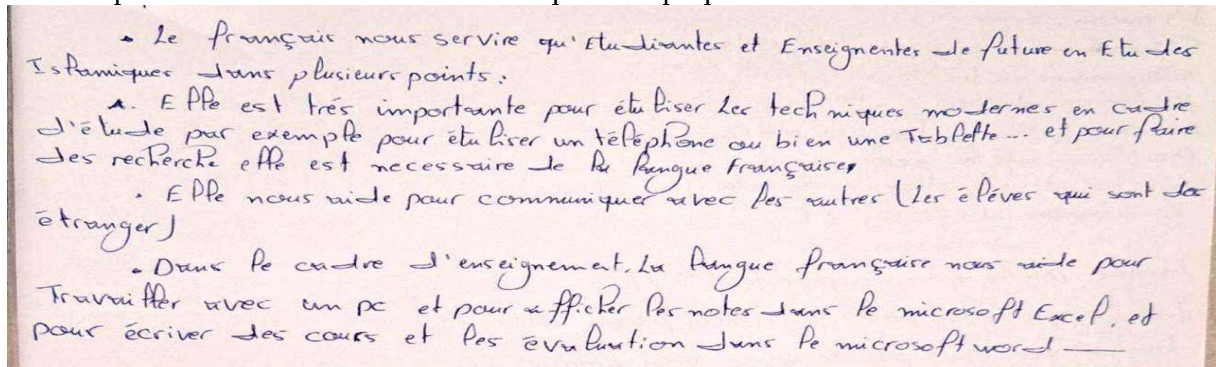 • Le français nous servire qu'Etudiantes et Enseignentes de future en Etudes
Islamiques dans plusieurs points :
• Elle est trés importante pour étuliser les techniques modernes en cadre
d'étude par exemple pour étuliser un téléphone ou bien une Tablette... et pour faire
des recherche elle est necessaire de la langue Française,
• Elle nous aide pour communiquer avec les autres (les éléves qui sont des
étranger)
• Dans le cadre d'enseignement. La langue française nous aide pour
Travailler avec un pc et pour afficher les notes dans le microsoft Excel, et
pour écriver des cours et les évaluation dans le microsoft word —